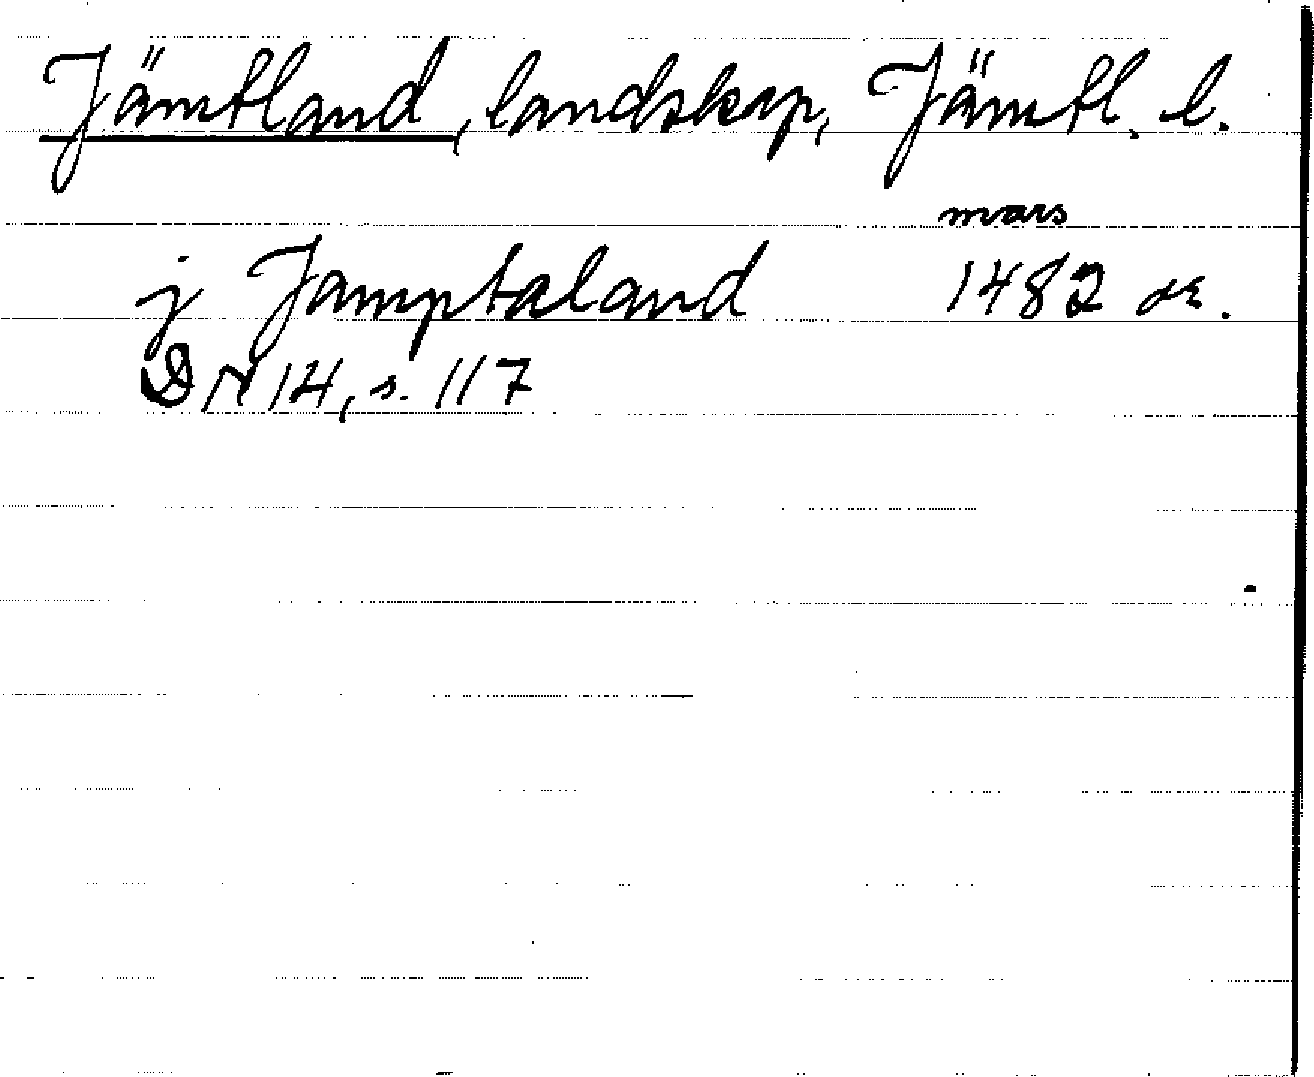 Jämtland, landskap, Jämtl. l.
mars
j Jamptaland 1482 or.
DN 14, s. 117